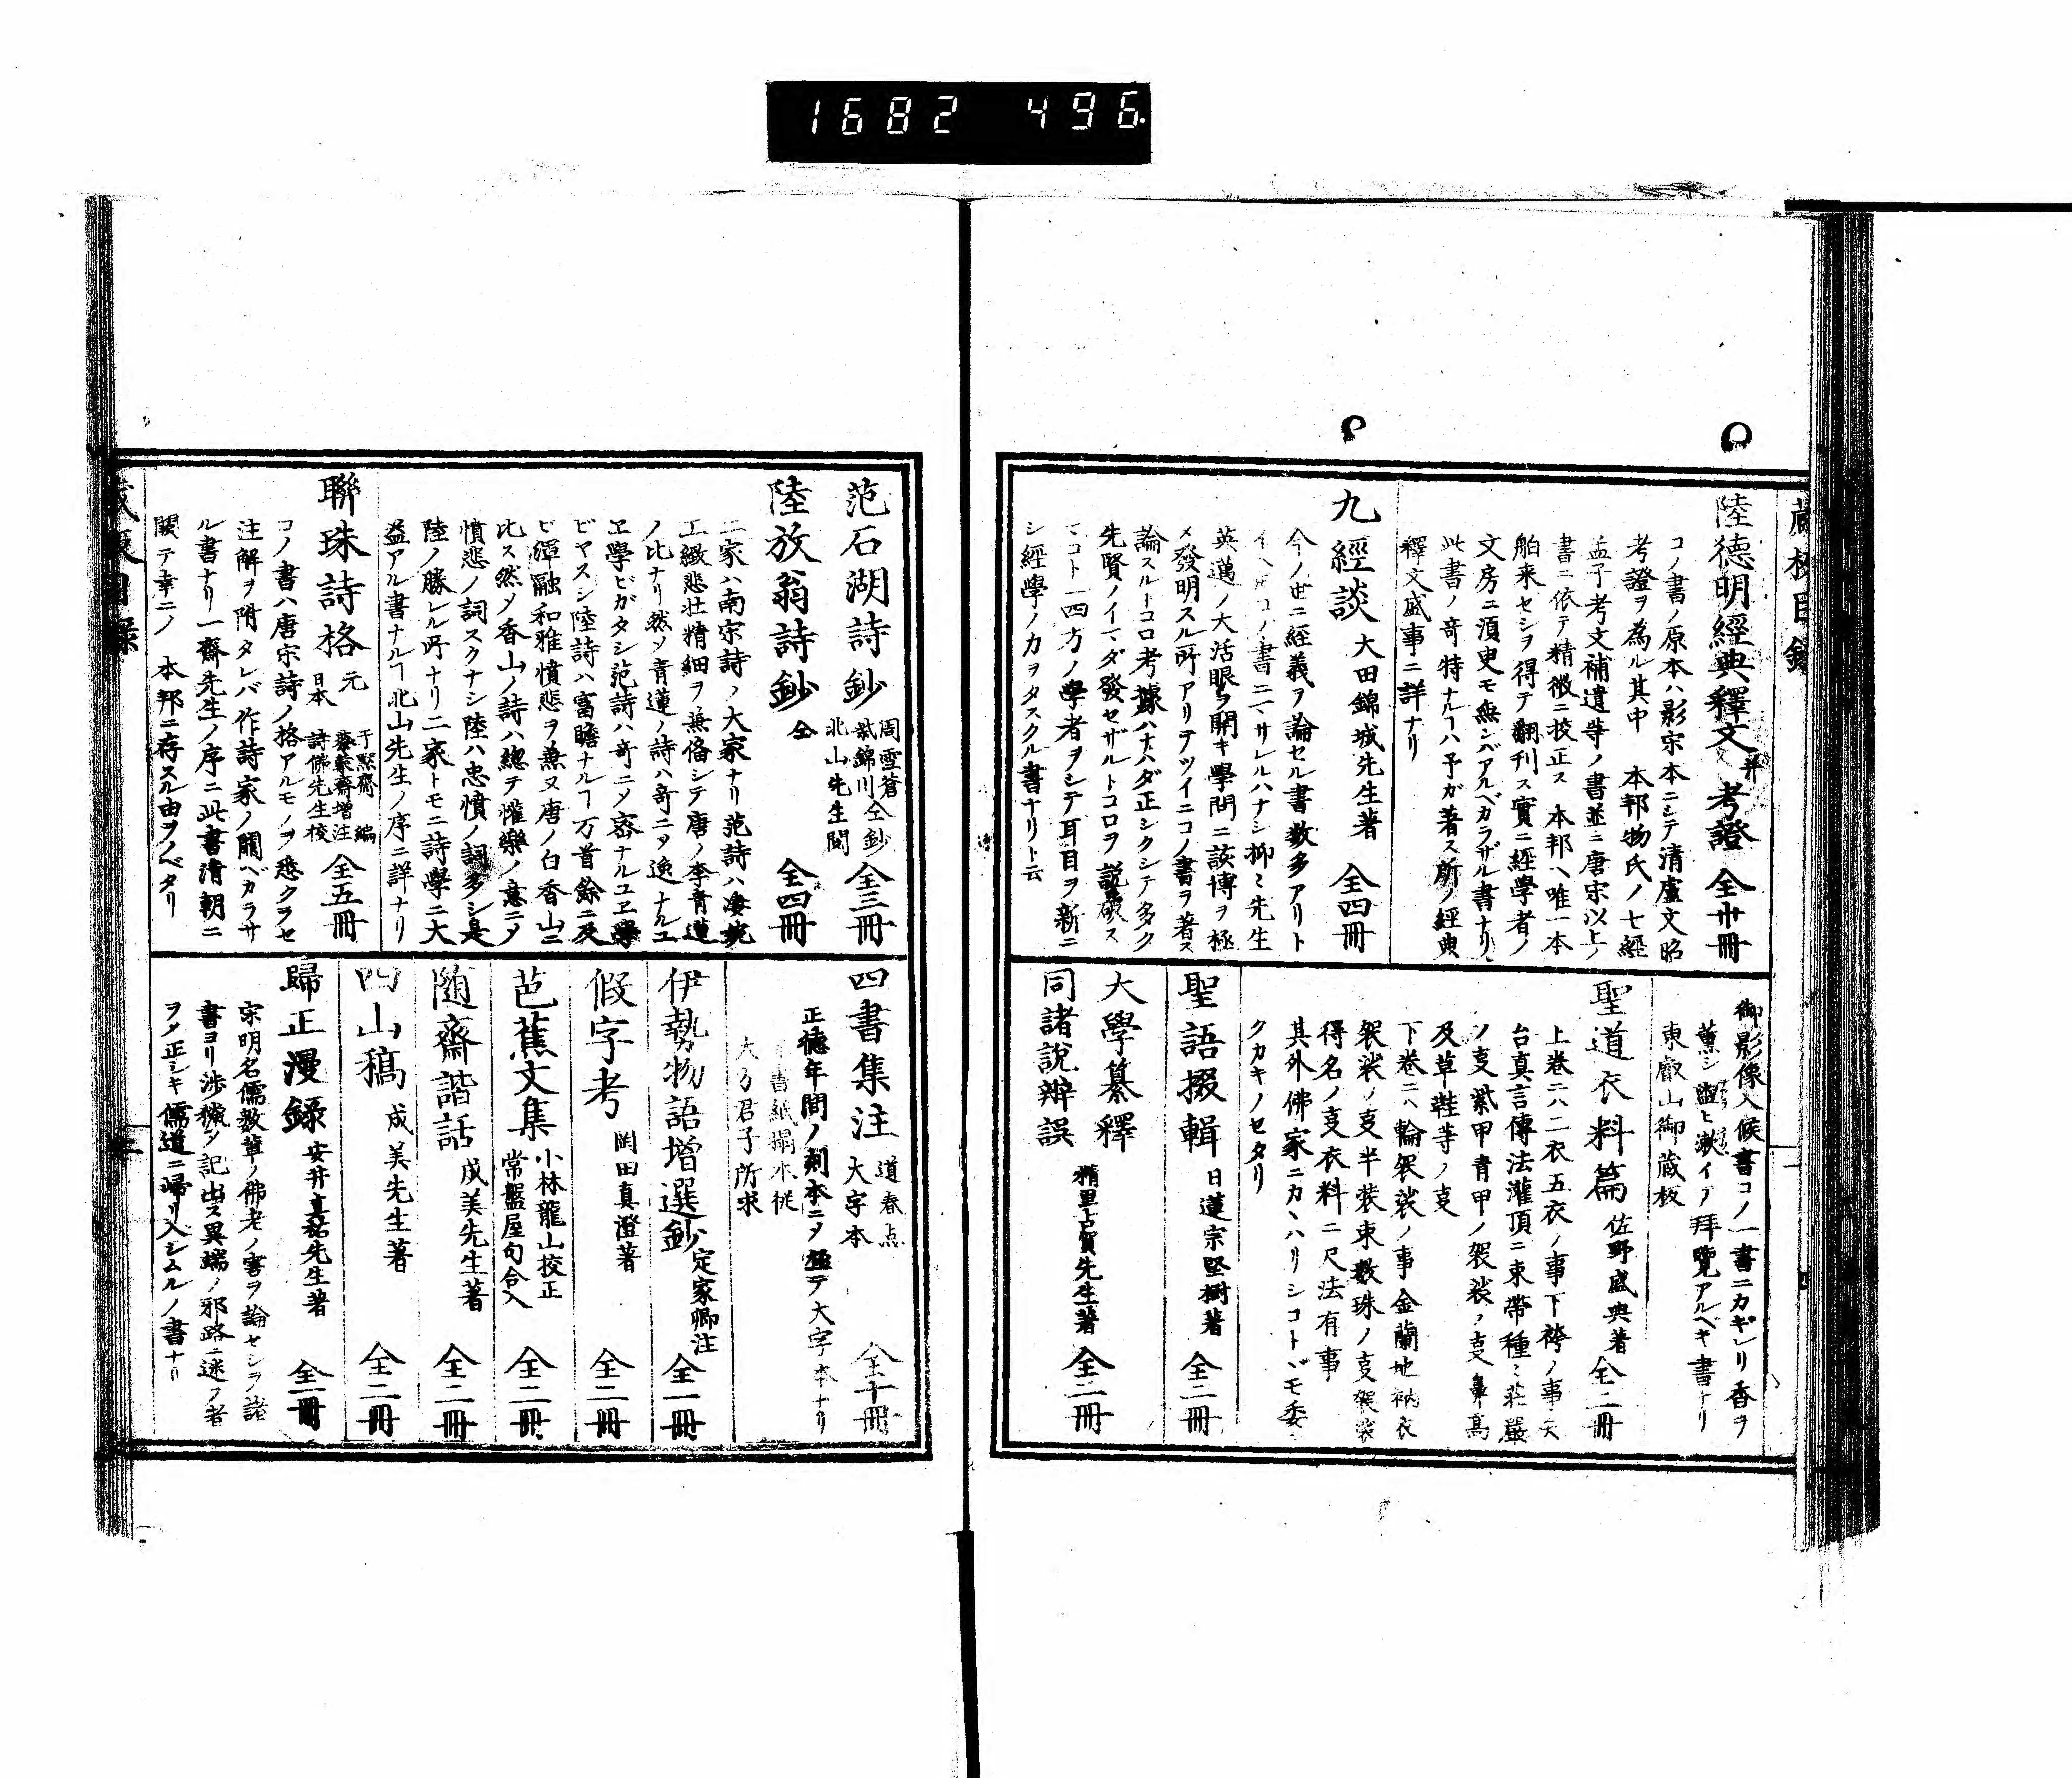 1682 496
藏板目錄
陸德明經典釋文 并 考證 全廿冊
コノ書ノ原本ハ影宗本ニシテ清盧文昭
考證ヲ為ル其中 本邦物氏ノ七經
孟子考文補遺等ノ書並ニ唐宗以上ノ
書ニ依テ精徴ニ校正ス 本邦ヘ唯一本
舶来セシヲ得テ翻刊ス實ニ經學者ノ
文房ニ須臾モ無ンバアルベカラザル書ナリ
此書ノ奇特ナルヿハ予ガ著ス所ノ經典
釋文盛事ニ詳ナリ
九經談 大田錦城先生著 全四冊
今ノ世ニ經義ヲ論セル書数多アリト
イヘ𪜈コノ書ニマサレルハナシ抑〻先生
英邁ノ大活眼ヲ開キ學問ニ該博ヲ極
メ發明スル所アリテツイニコノ書ヲ著ス
論スルトコロ考據ハナハダ正シクシテ多ク
先賢ノイマダ發セザルトコロヲ説破ス
マコト一四方ノ學者ヲシテ耳目ヲ新ニ
シ經學ノカヲタスクル書ナリト云
御影像入候書コノ一書ニカギリ香ヲ
薫シ盥ヒ漱イテ拜覽アルベキ書ナリ
東叡山御蔵板
聖道衣料篇 佐野盛典著 全二冊
上巻ニハ二衣五衣ノ事下袴ノ事天
台真言傳法灌頂ニ束帶種〻荘嚴
ノ叓紫甲青甲ノ袈裟ノ叓鼻高
及草鞋等ノ叓
下巻ニハ輪袈裟ノ事金蘭地衲衣
袈裟ノ叓半装束數珠ノ叓袈裟
得名ノ叓衣料ニ尺法有事
其外佛家ニカヽハリシコトドモ委
クカキノセタリ
聖語掇輯 日蓮宗堅樹著 全二冊
大學纂釋
同諸説辨誤 精里古賀先生著 全二冊
范石湖詩鈔 周雪蒼 戢錦川 仝鈔 北山先生閲 全三冊
陸放翁詩鈔 仝 全四冊
二家ハ南宗詩ノ大家ナリ范詩ハ凄婉
工緻悲壮精細ヲ兼備シテ唐ノ李青蓮
ノ比ナリ然ソ青蓮ノ詩ハ奇ニソ逸ナルユ
ヱ學ビガタシ范詩ハ奇ニソ密ナルユヱ學
ビヤスシ陸詩ハ富贍ナルヿ万首餘ニ及
ビ渾融和雅憤悲ヲ兼又唐ノ白香山ニ
比ス然ソ香山ノ詩ハ總テ懽樂ノ意ニソ
憤悲ノ詞スクナシ陸ハ忠憤ノ詞多シ是
陸ノ勝レル所ナリ二家トモニ詩學ニ大
益アル書ナルヿ北山先生ノ序ニ詳ナリ
聯珠詩格 元 于黙齋 編 蔡蒙齋增注 日本 詩佛先生校 全五冊
コノ書ハ唐宗詩ノ格アルモノヲ悉クラセ
注解ヲ附タレバ作詩家ノ闕ベカラサ
ル書ナリ一齋先生ノ序ニ此書清朝ニ
闕テ幸ニノ 本邦ニ存スル由ヲノベタリ
四書集注 道春点 大字本 全十冊
正徳年間ノ刻本ニソ極テ大字本ナリ
大方君子所求
伊勢物語增選鈔 定家卿注 全一冊
假字考 岡田真澄著 全二冊
芭蕉文集 小林龍山挍正 常盤屋句合入 全二冊
随齋諧話 成美先生著 全二冊
四山稿 成美先生著 全二冊
歸正漫錄 安井真祐先生著 全一冊
宗明名儒数輩ノ佛老ノ害ヲ論セシヲ諸
書ヨリ渉穢シ記出ス異端ノ邪路ニ迷フ者
ヲソ正シキ儒道ニ歸リ入シムルノ書ナリ
藏板目錄